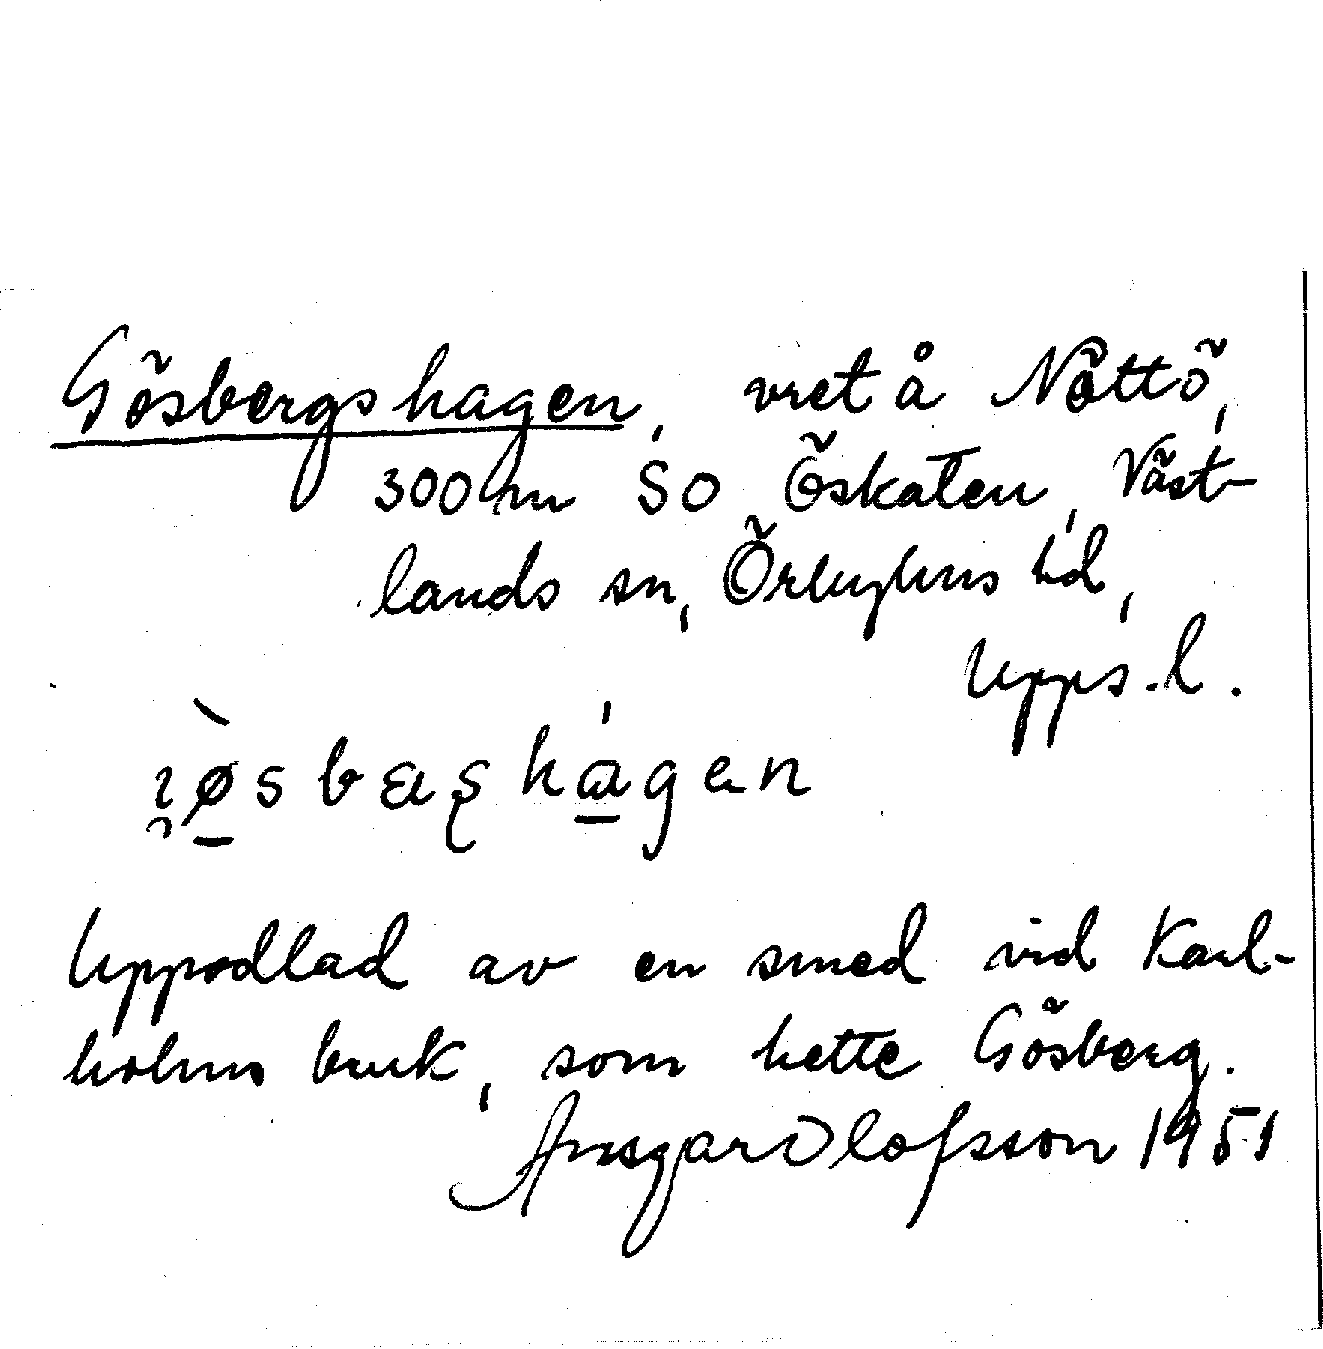 Gösbergshagen, vret å Nöttö,
300 m SO Öskaten, Väst-
lands sn, Örbyhus hd,
Upps. l.
Uppodlad av en smed vid Karl-
holms bruk, som hette Gösberg.
Ansgar Olofsson 1951